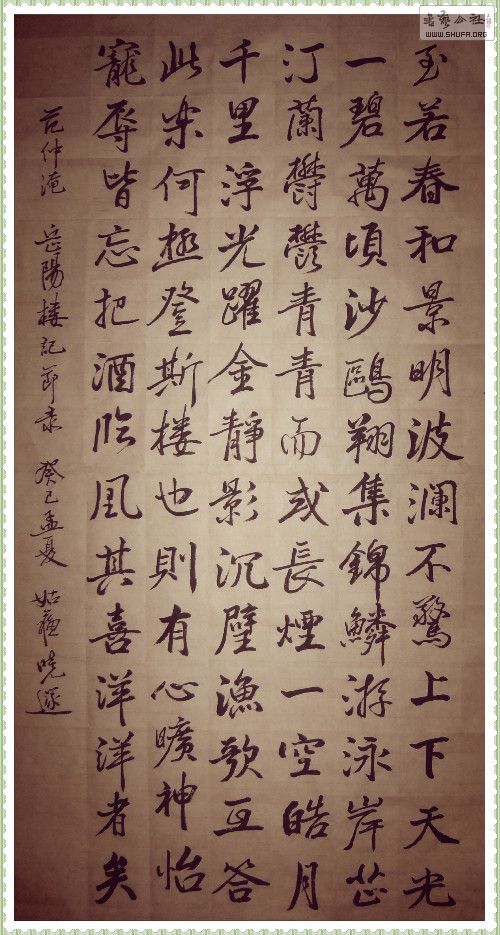 書艺公社
WWW.SHUFA.ORG
至若春和景明波澜不驚上下天光
一碧萬頃沙鷗翔集錦鱗游泳岸芷
汀蘭鬱鬱青青而或長煙一空皓月
千里浮光躍金靜影沉璧漁歌互答
此樂何極登斯楼也則有心曠神怡
寵辱皆忘把酒临風其喜洋洋者矣
范仲淹 岳陽楼記節录 癸巳孟夏 姑蘇